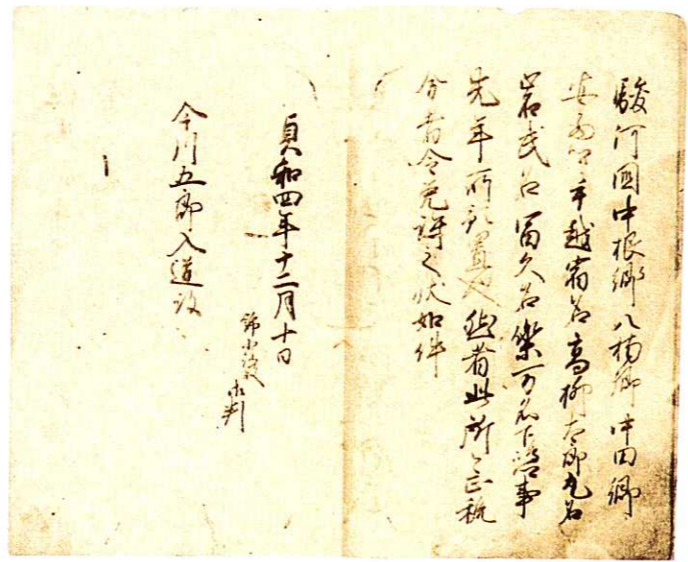 駿河國中根郷八楠郷中田郷
手越宿名高柳太郎丸名
岩武名冨久名楽万名下治事
先年所預置也然者此所々正税
分者令免許之状如件
貞和四年十二月十日
御判
今川五郎入道殿